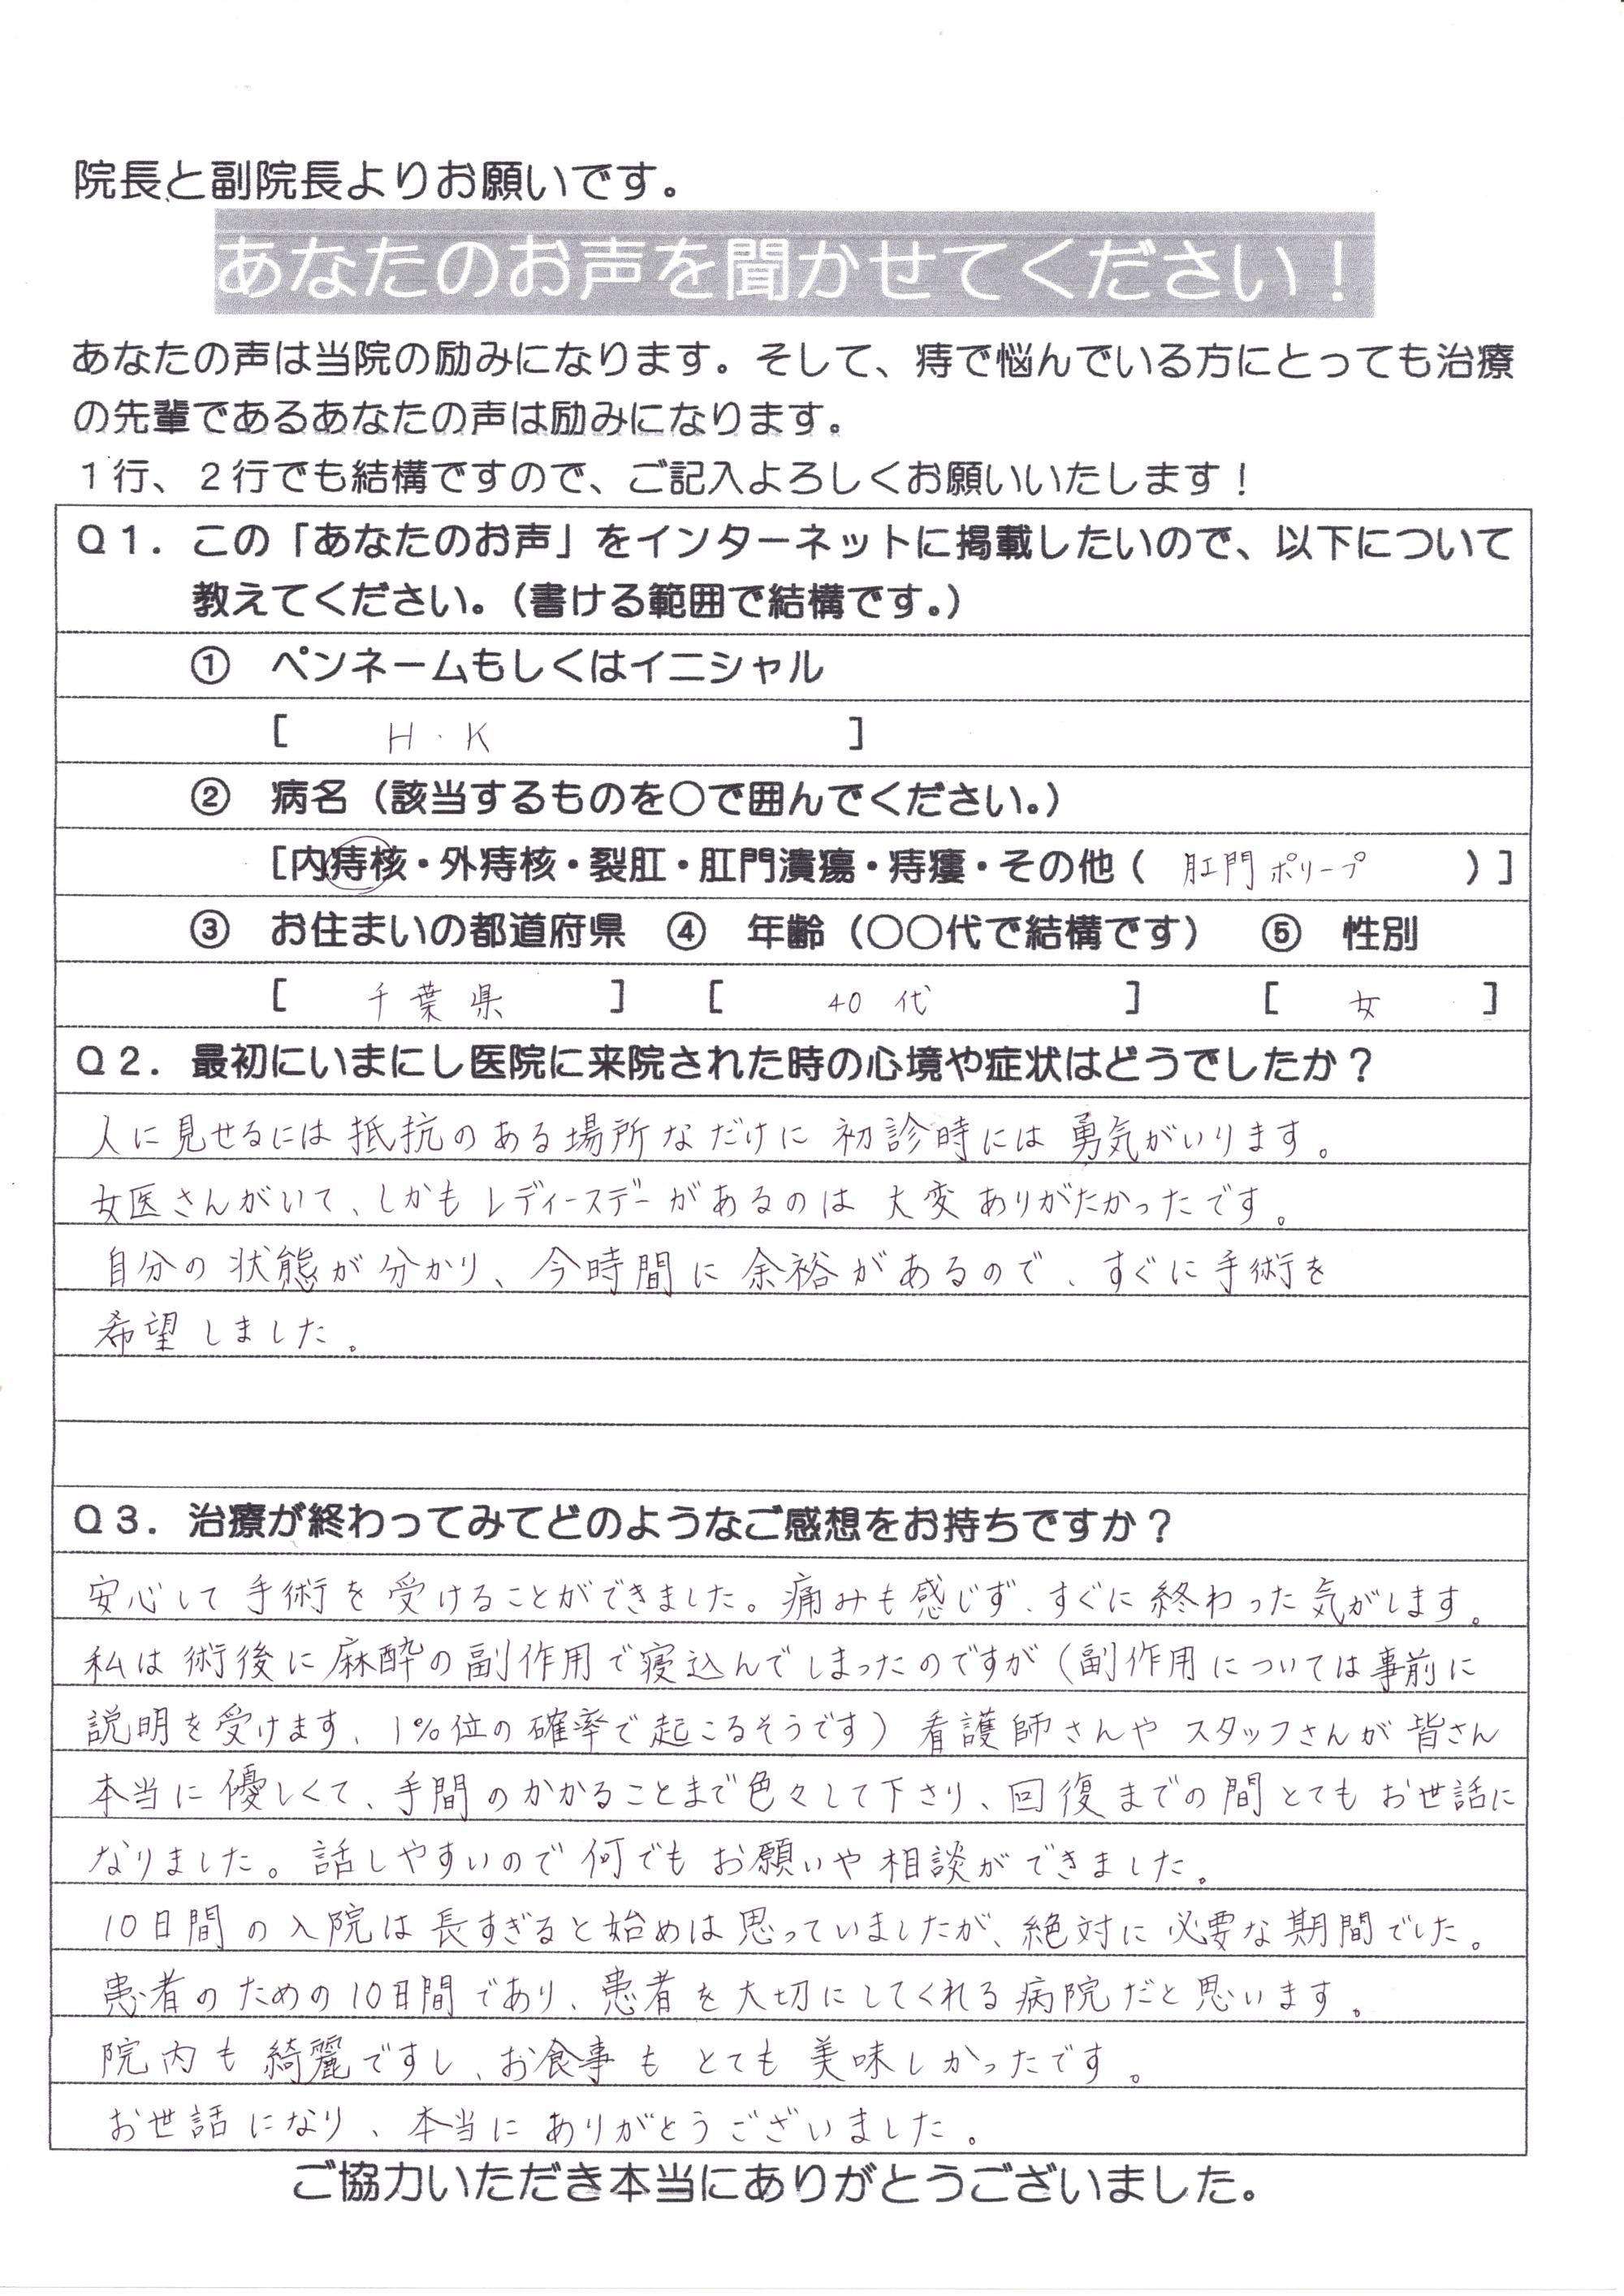 院長と副院長よりお願いです。
あなたのお声を聞かせてください！
あなたの声は当院の励みになります。そして、痔で悩んでいる方にとっても治療
の先輩であるあなたの声は励みになります。
１行、２行でも結構ですので、ご記入よろしくお願いいたします！
Ｑ１．この「あなたのお声」をインターネットに掲載したいので、以下について
教えてください。（書ける範囲で結構です。）
① ペンネームもしくはイニシャル
[ H・K ]
② 病名（該当するものを○で囲んでください。）
[内痔核・外痔核・裂肛・肛門潰瘍・痔瘻・その他（ 肛門ポリープ ）]
③ お住まいの都道府県 ④ 年齢（○○代で結構です） ⑤ 性別
[ 千葉県 ] [ 40代 ] [ 女 ]
Ｑ２．最初にいまにし医院に来院された時の心境や症状はどうでしたか？
人に見せるには抵抗のある場所なだけに初診時には勇気がいります。
女医さんがいて、しかもレディースデーがあるのは大変ありがたかったです。
自分の状態が分かり、今時間に余裕があるので、すぐに手術を
希望しました。
Ｑ３．治療が終わってみてどのようなご感想をお持ちですか？
安心して手術を受けることができました。痛みも感じず、すぐに終わった気がします。
私は術後に麻酔の副作用で寝込んでしまったのですが（副作用については事前に
説明を受けます、1%位の確率で起こるそうです）看護師さんやスタッフさんが皆さん
本当に優しくて、手間のかかることまで色々して下さり、回復までの間とてもお世話に
なりました。話しやすいので何でもお願いや相談ができました。
10日間の入院は長すぎると始めは思っていましたが、絶対に必要な期間でした。
患者のための10日間であり、患者を大切にしてくれる病院だと思います。
院内も綺麗ですし、お食事もとても美味しかったです。
お世話になり、本当にありがとうございました。
ご協力いただき本当にありがとうございました。